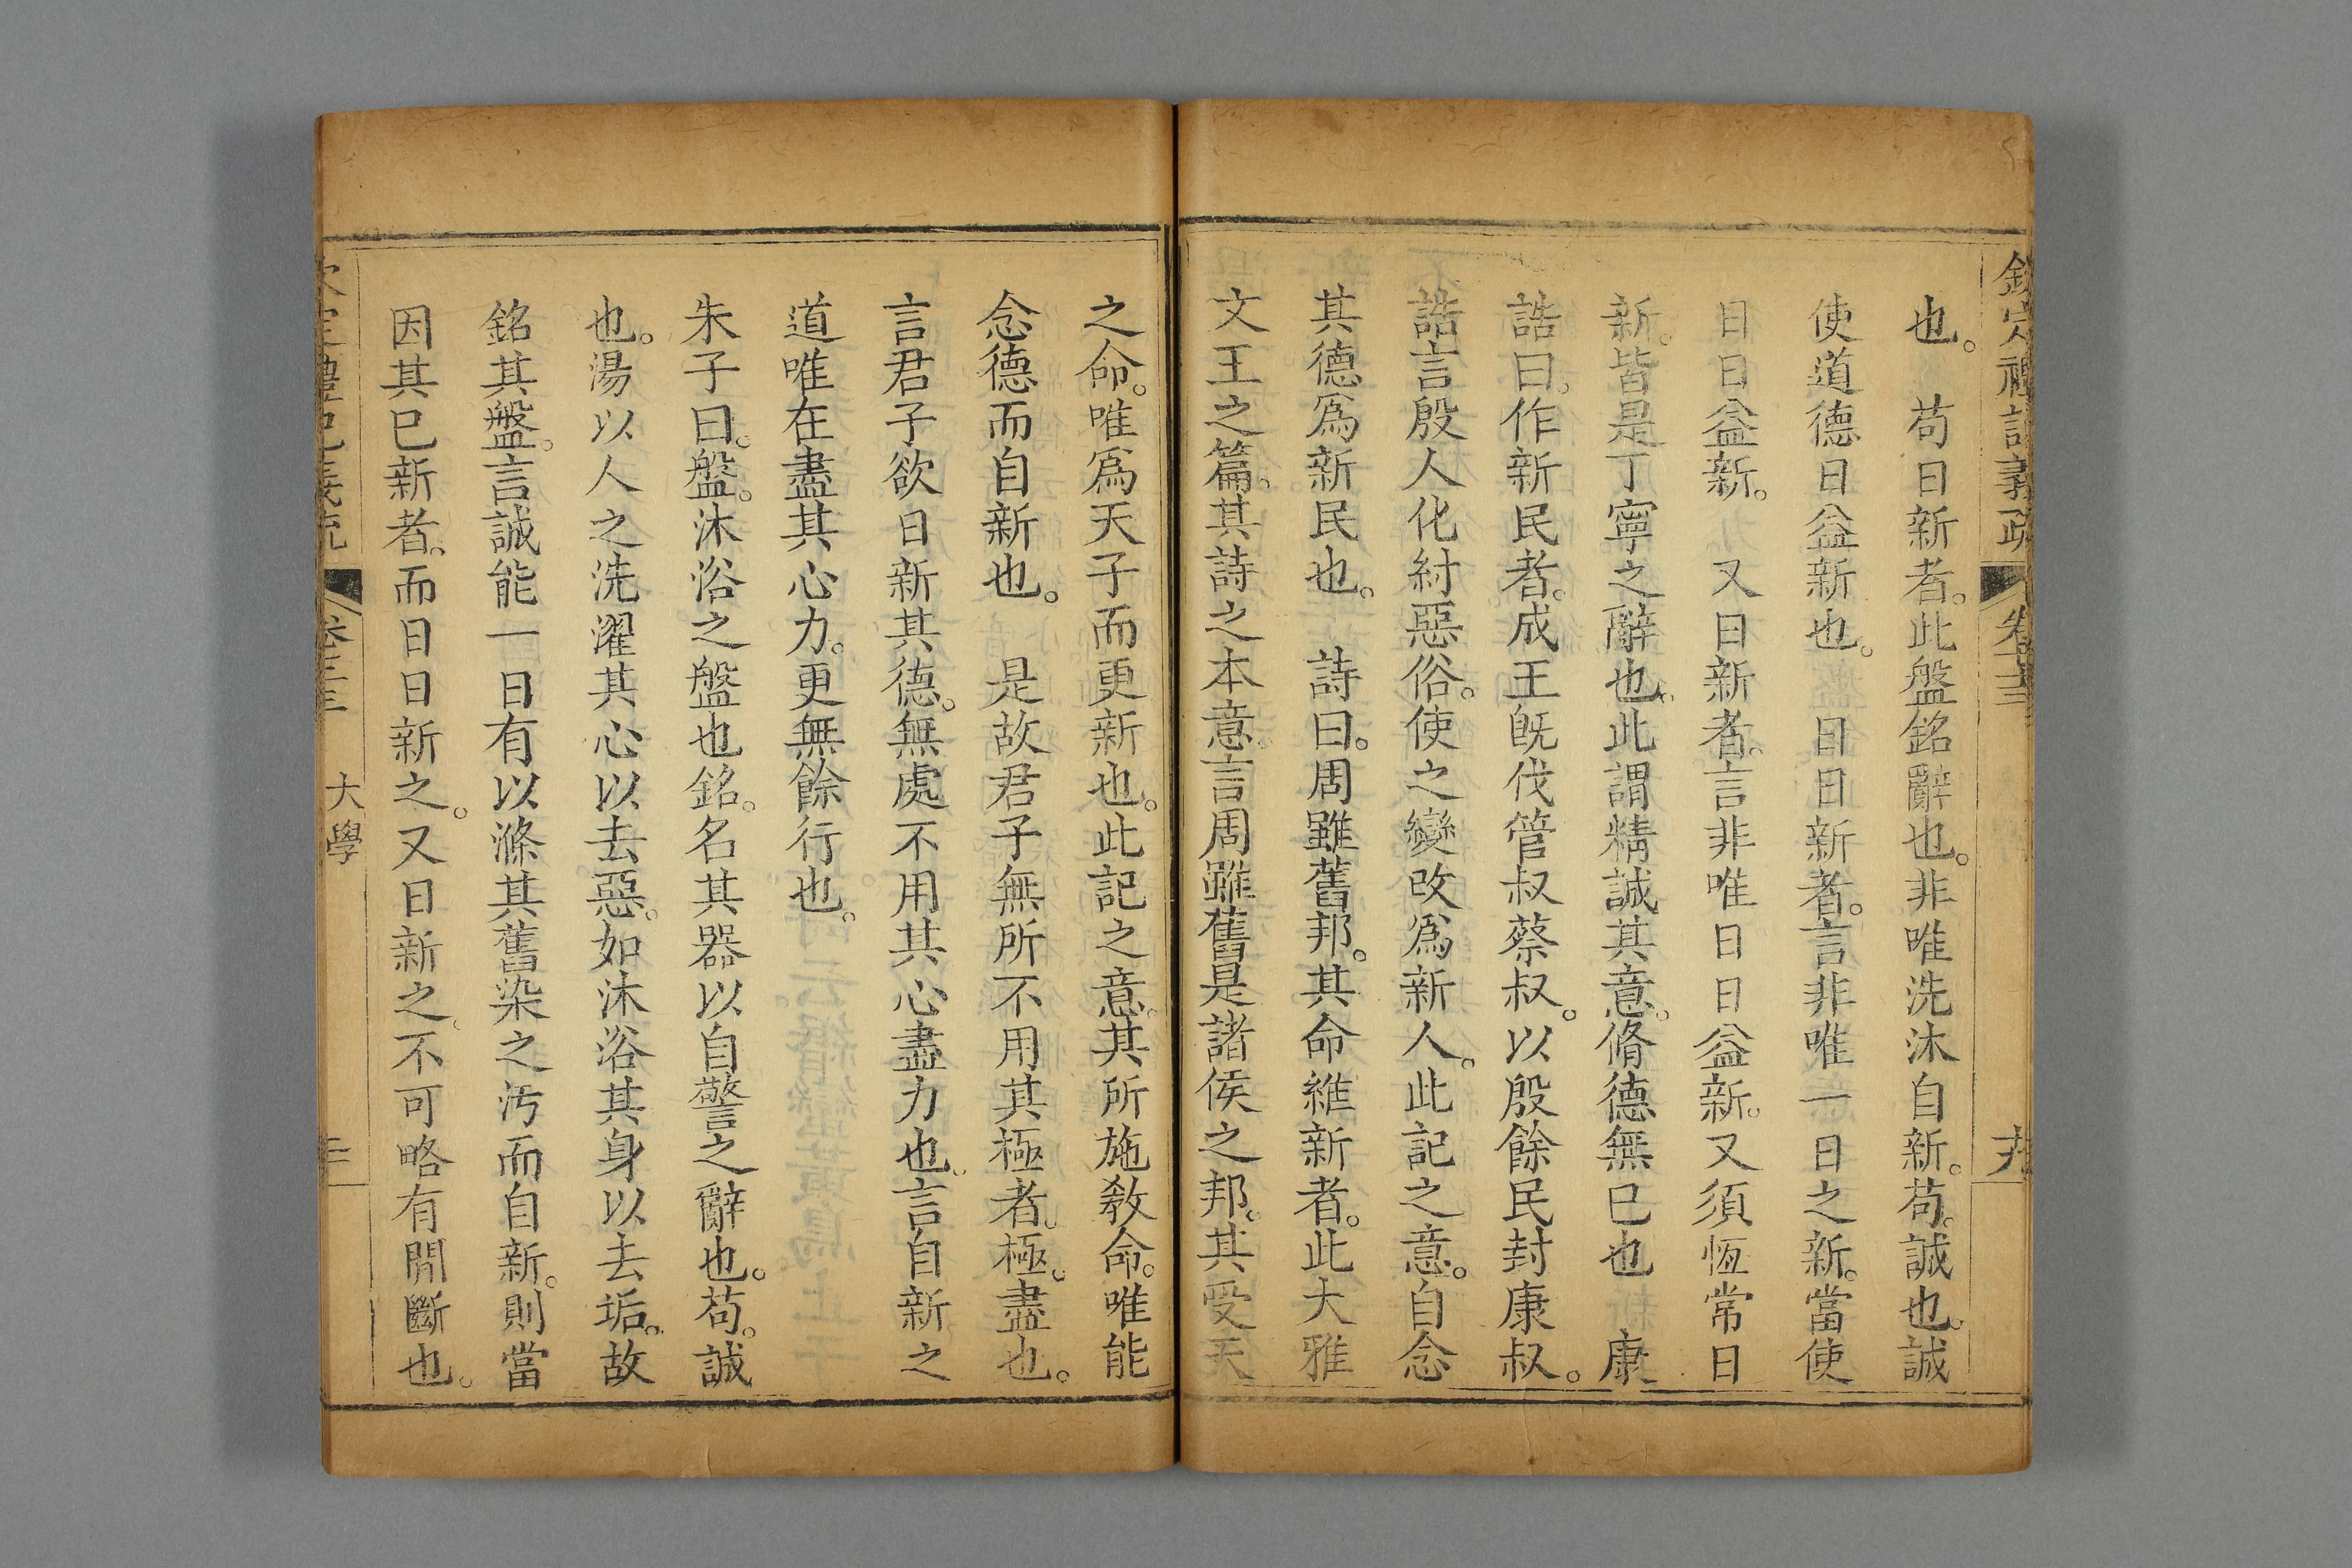 欽定禮記義疏 卷七十三
也。　苟日新者。此盤銘辭也。非唯洗沐自新。苟。誠也。誠
使道德日益新也。　日日新者。言非唯一日之新。當使
日日益新。　又日新者。言非唯日日益新。又須恆常日
新。皆是丁寧之辭也。此謂精誠其意。脩德無已也　康
誥曰。作新民者。成王既伐管叔蔡叔。以殷餘民封康叔。
誥言殷人化紂惡俗。使之變改爲新人。此記之意。自念
其德爲新民也。　詩曰。周雖舊邦。其命維新者。此大雅
文王之篇。其詩之本意。言周雖舊是諸侯之邦。其受天
之命。唯爲天子而更新也。此記之意。其所施教命。唯能
念德而自新也。　是故君子無所不用其極者。極。盡也。
言君子欲日新其德。無處不用其心盡力也。言自新之
道唯在盡其心力。更無餘行也。
朱子曰。盤。沐浴之盤也銘。名其器以自警之辭也。苟。誠
也。湯以人之洗濯其心以去惡。如沐浴其身以去垢。故
銘其盤。言誠能一日有以滌其舊染之汚而自新。則當
因其已新者。而日日新之。又日新之。不可略有間斷也。
大學